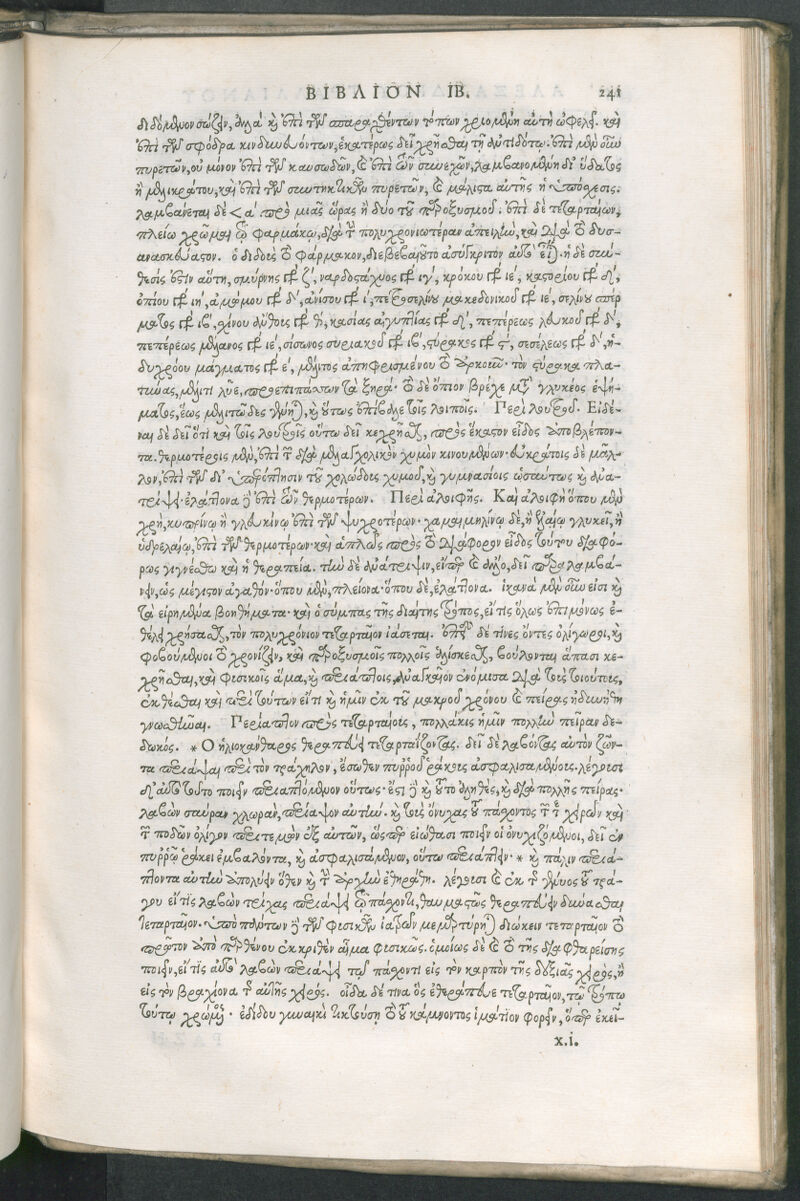 ΒΙΒΛΙΟΝ ΙΒ. 241
διδόμενον σώζειν, ἀλλὰ καὶ ἐπὶ τῶν τόπων χριομένη αὐτὴ ὠφελεῖ. καὶ
ἐπὶ τῶν σφόδρα κινδυνευόντων, ἑκατέρως δεῖ χρῆσθαι τῇ ἀντιδότῳ. ἐπὶ μὲν οὖν
πυρετῶν, οὐ μόνον ἐπὶ τῶν καυσωδῶν, καὶ ἐπὶ τῶν συνεχῶν, λαμβανομένη δι' ὕδατος
ἢ μελικράτου, καὶ ἐπὶ τῶν συντηκτικῶν πυρετῶν, καὶ μάλιστα αὐτῆς ἡ ὑπόσχεσις.
λαμβάνεται δὲ < α' πρὸ μιᾶς ὥρας ἢ δύο τοῦ παροξυσμοῦ. ἐπὶ δὲ τεταρταίων,
πλείω χρῶμαι τῷ φαρμάκῳ, διὰ τὴν πολυχρονιωτέραν ἀπειλὴν, καὶ διὰ τὸ δυσ-
ανασκεύαστον. ὁ διδοὺς τὸ φάρμακον, διεβεβαιοῦτο ἀσύγκριτον αὐτὸ εἶναι. ἡ δὲ σύν-
θεσίς ἐστιν αὕτη, σμύρνης ζ', ναρδοστάχυος ιγ', κρόκου ιε', καστορίου δ',
ὀπίου ιη', ἀμώμου δ', ἀνίσου ι', πετροσελίνου μακεδονικοῦ ιε', σελίνου σπέρ
ματος ιβ', σχίνου ἄνθους θ', κασίας αἰγυπτίας δ', πεπέρεως λευκοῦ δ',
πεπέρεως μέλανος ιε', σίσωνος συριακοῦ ιβ', στύρακος ϛ', σεσέλεως δ', ἡ-
δυχρόου μάγματος ε', μέλιτος ἀπηφρισμένου τὸ ἀρκοῦν. τὸν στύρακα πλα-
τύνας, μέλιτι λύε, προσεπιπάσσων τὰ ξηρά. τὸ δὲ ὄπιον βρέχε μετὰ γλυκέος ἑψή-
ματος, ἕως μελιτῶδες γένηται, καὶ οὕτως ἐπίβαλε τοῖς λοιποῖς. Περὶ λουτροῦ. Εἰδέ-
ναι δὲ δεῖ ὅτι καὶ τοῖς λουτροῖς οὕτω δεῖ κεχρῆσθαι, πρὸς ἕκαστον εἶδος ἀποβλέπον-
τα. θερμοτέροις μὲν, ἐπὶ τῶν διὰ μελαγχολικὸν χυμὸν κινουμένων. εὐκράτοις δὲ μᾶλ-
λον, ἐπὶ τῶν δι' ὑπερόπτησιν τοῦ χολώδους χυμοῦ, καὶ γυμνασίοις ὡσαύτως καὶ ἀνα-
τρίψει. ἐλάττονα δὲ ἐπὶ τῶν θερμοτέρων. Περὶ ἀλοιφῆς. Καὶ ἀλοιφῇ ὅπου μὲν
χρὴ, κυπρίνῳ ἢ γλευκίνῳ ἐπὶ τῶν ψυχροτέρων. χαμαιμηλίνῳ δὲ, ἢ ἐλαίῳ γλυκεῖ, ἢ
ὑδρελαίῳ, ἐπὶ τῶν θερμοτέρων. καὶ ἁπλῶς πρὸς τὸ διάφορον εἶδος τούτου διαφό-
ρως γιγνέσθω καὶ ἡ θεραπεία. τὴν δὲ ἀνάτριψιν, εἴπερ τι καὶ ἄλλο, δεῖ παραλαμβά-
νειν, ὡς μέγιστον ἀγαθόν. ὅπου μὲν, πλείονα. ὅπου δὲ, ἐλάττονα. ἱκανὰ μὲν οὖν εἰσι καὶ
τὰ εἰρημένα βοηθήματα. καὶ ὁ σύμπας τῆς διαίτης τρόπος, εἴ τις ὅλως ἐπιμόνως ἐ-
θέλει χρήσασθαι, τὸν πολυχρόνιον τεταρταῖον ἰάσεται. ἐπεὶ δέ τινες ὄντες ὀλίγωροι, καὶ
φοβούμενοι τὸ χρονίζειν, καὶ παροξυσμοῖς πολλοῖς ἁλίσκεσθαι, βούλονται ἅπασι κε-
χρῆσθαι, καὶ φυσικοῖς ἅμα, καὶ περιάπτοις, ἀναγκαῖον ἐνόμισα διὰ τοὺς τοιούτους,
ἐκθέσθαι καὶ περὶ τούτων εἴ τι καὶ ἡμῖν ἐκ τοῦ μακροῦ χρόνου καὶ πείρας ἠδυνήθη
γνωσθῆναι. Περίαπτον πρὸς τεταρταίους, πολλάκις ἡμῖν πολλὴν πεῖραν δε-
δωκός. * Ὁ ἡλιοκάνθαρος θεραπεύει τεταρταΐζοντας. δεῖ δὲ λαβόντας αὐτὸν ζῶν-
τα περιάψαι περὶ τὸν τράχηλον, ἔσωθεν πυρροῦ ῥάκους ἀσφαλισαμένους. λέγουσι
δ' αὐτὸ τοῦτο ποιεῖν περιαπτόμενον οὕτως. ἔστι δὲ καὶ τοῦτο ἀληθὲς, καὶ διὰ πολλῆς πείρας.
λαβὼν σαύραν χλωρὰν, περίαψον αὐτὴν. καὶ τοὺς ὄνυχας τοῦ πάσχοντος τῶν τε χειρῶν καὶ
τῶν ποδῶν ὀλίγον περιτεμὼν ἐξ αὐτῶν, ὥσπερ εἰώθασι ποιεῖν οἱ ὀνυχιζόμενοι, δεῖ ἐν
πυρρῷ ῥάκει ἐμβαλόντα, καὶ ἀσφαλισάμενον, οὕτω περιάπτειν. * καὶ πάλιν περιά-
πτοντα αὐτὴν ἀπολύειν ὅθεν καὶ τὴν ἀρχὴν ἐθηράθη. λέγουσι καὶ ἐκ τοῦ γένυος τοῦ τρά-
γου εἴ τις λαβὼν τρίχας περιάψει τῷ πάσχοντι, θαυμαστῶς θεραπεύειν δύνασθαι
τεταρταῖον. ὑπὸ πάντων δὲ τῶν φυσικῶν ἰατρῶν μεμαρτύρηται διώκειν τεταρταῖον τὸ
πρῶτον ἀπὸ παρθένου ἐκκριθὲν αἷμα φυσικῶς. ὁμοίως δὲ καὶ τὸ τῆς διαφθαρείσης
ποιεῖν, εἴ τις αὐτὸ λαβὼν περιάψει τῷ πάσχοντι εἰς τὸν καρπὸν τῆς δεξιᾶς χειρὸς, ἢ
εἰς τὸν βραχίονα τῆς αὐτῆς χειρός. οἶδα δέ τινα ὃς ἐθεράπευε τεταρταῖον, τῷ τρόπῳ
τούτῳ χρώμενος. ἐδίδου γυναικὶ τικτούσῃ τὸ τοῦ κάμνοντος ἱμάτιον φορεῖν, ὅπερ ἐκεῖ-
x.i.